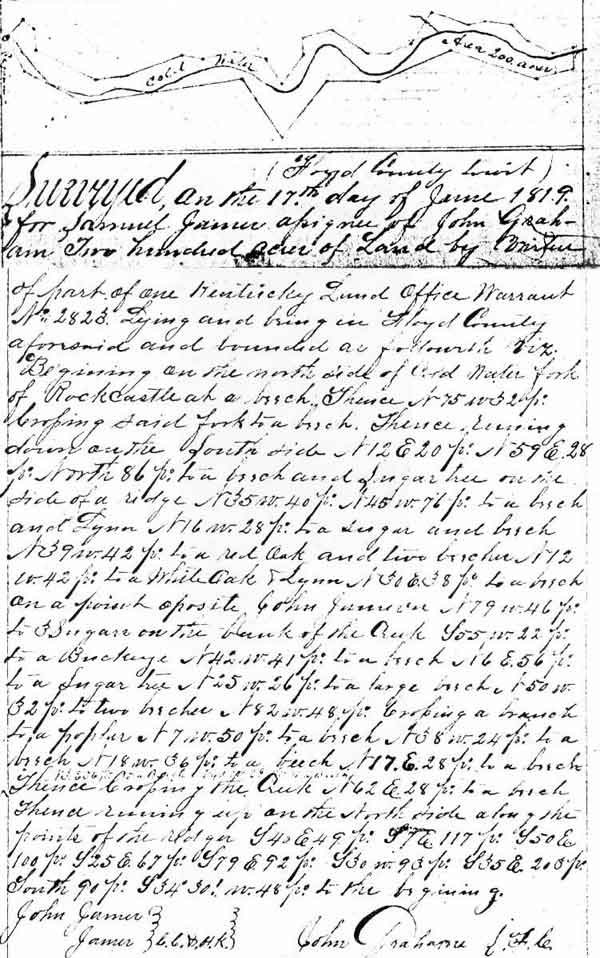 Cold Water
Area 200 acres
(Floyd County towit)
Surveyed, on the 17th day of June 1819.
for Samuel James asignee of John Grah-
am Two hundred acres of Land by Virtue
of part of one Kentucky Land Office Warrant
No 2823. Lying and being in Floyd County
aforesaid and bounded as followeth Viz.
Begining on the north side of Cold Water fork
of Rockcastle at a beech, Thence N 75 W 32 p:
Crossing said fork to a beech. Thence running
down on the South side N 12 E 20 p: N 59 E. 28
p: North 86 p: to a beech and Sugar tree on the
side of a ridge N 35 w. 40 p: N 45 w. 76 p: to a beech
and Lynn N 16 w. 28 p: to a sugar and beech
N 39 w. 42 p: to a red Oak and two beeches N 12
w. 42 p: to a White Oak & Lynn N 30 E 38 p: to a beech
on a point oposite John Jameses N 79 w. 46 p:
to 3 Sugars on the bank of the Creek S 55 w. 22 p:
to a Buckeye N 42 w. 41 p: to a beech N 6 E. 56 p:
to a Sugar tree N 25 w. 26 p: to a large beech N 50 w.
32 p: to two beeches N 82 w. 48 p: Crossing a branch
to a poplar N 7 w. 50 p: to a beech N 38 w. 24 p: to a
beech N 18 w. 36 p: to a beech N 17. E. 28 p: to a beech
Thence Crossing the Creek N 62 E 28 p: to a beech
Thence running up on the North side along the
points of the ridges S 40 E 49 p: S 7 E 117 p: S 50 E
100 p: S 25 E. 67 p: S 79 E. 92 p: S 30 w. 93 p: S 35 E. 203 p:
South 90 p: S 34° 30' w. 48 p: to the begining.
John James }
James } C.C. & H.K. }
John Grahame S. F. C.